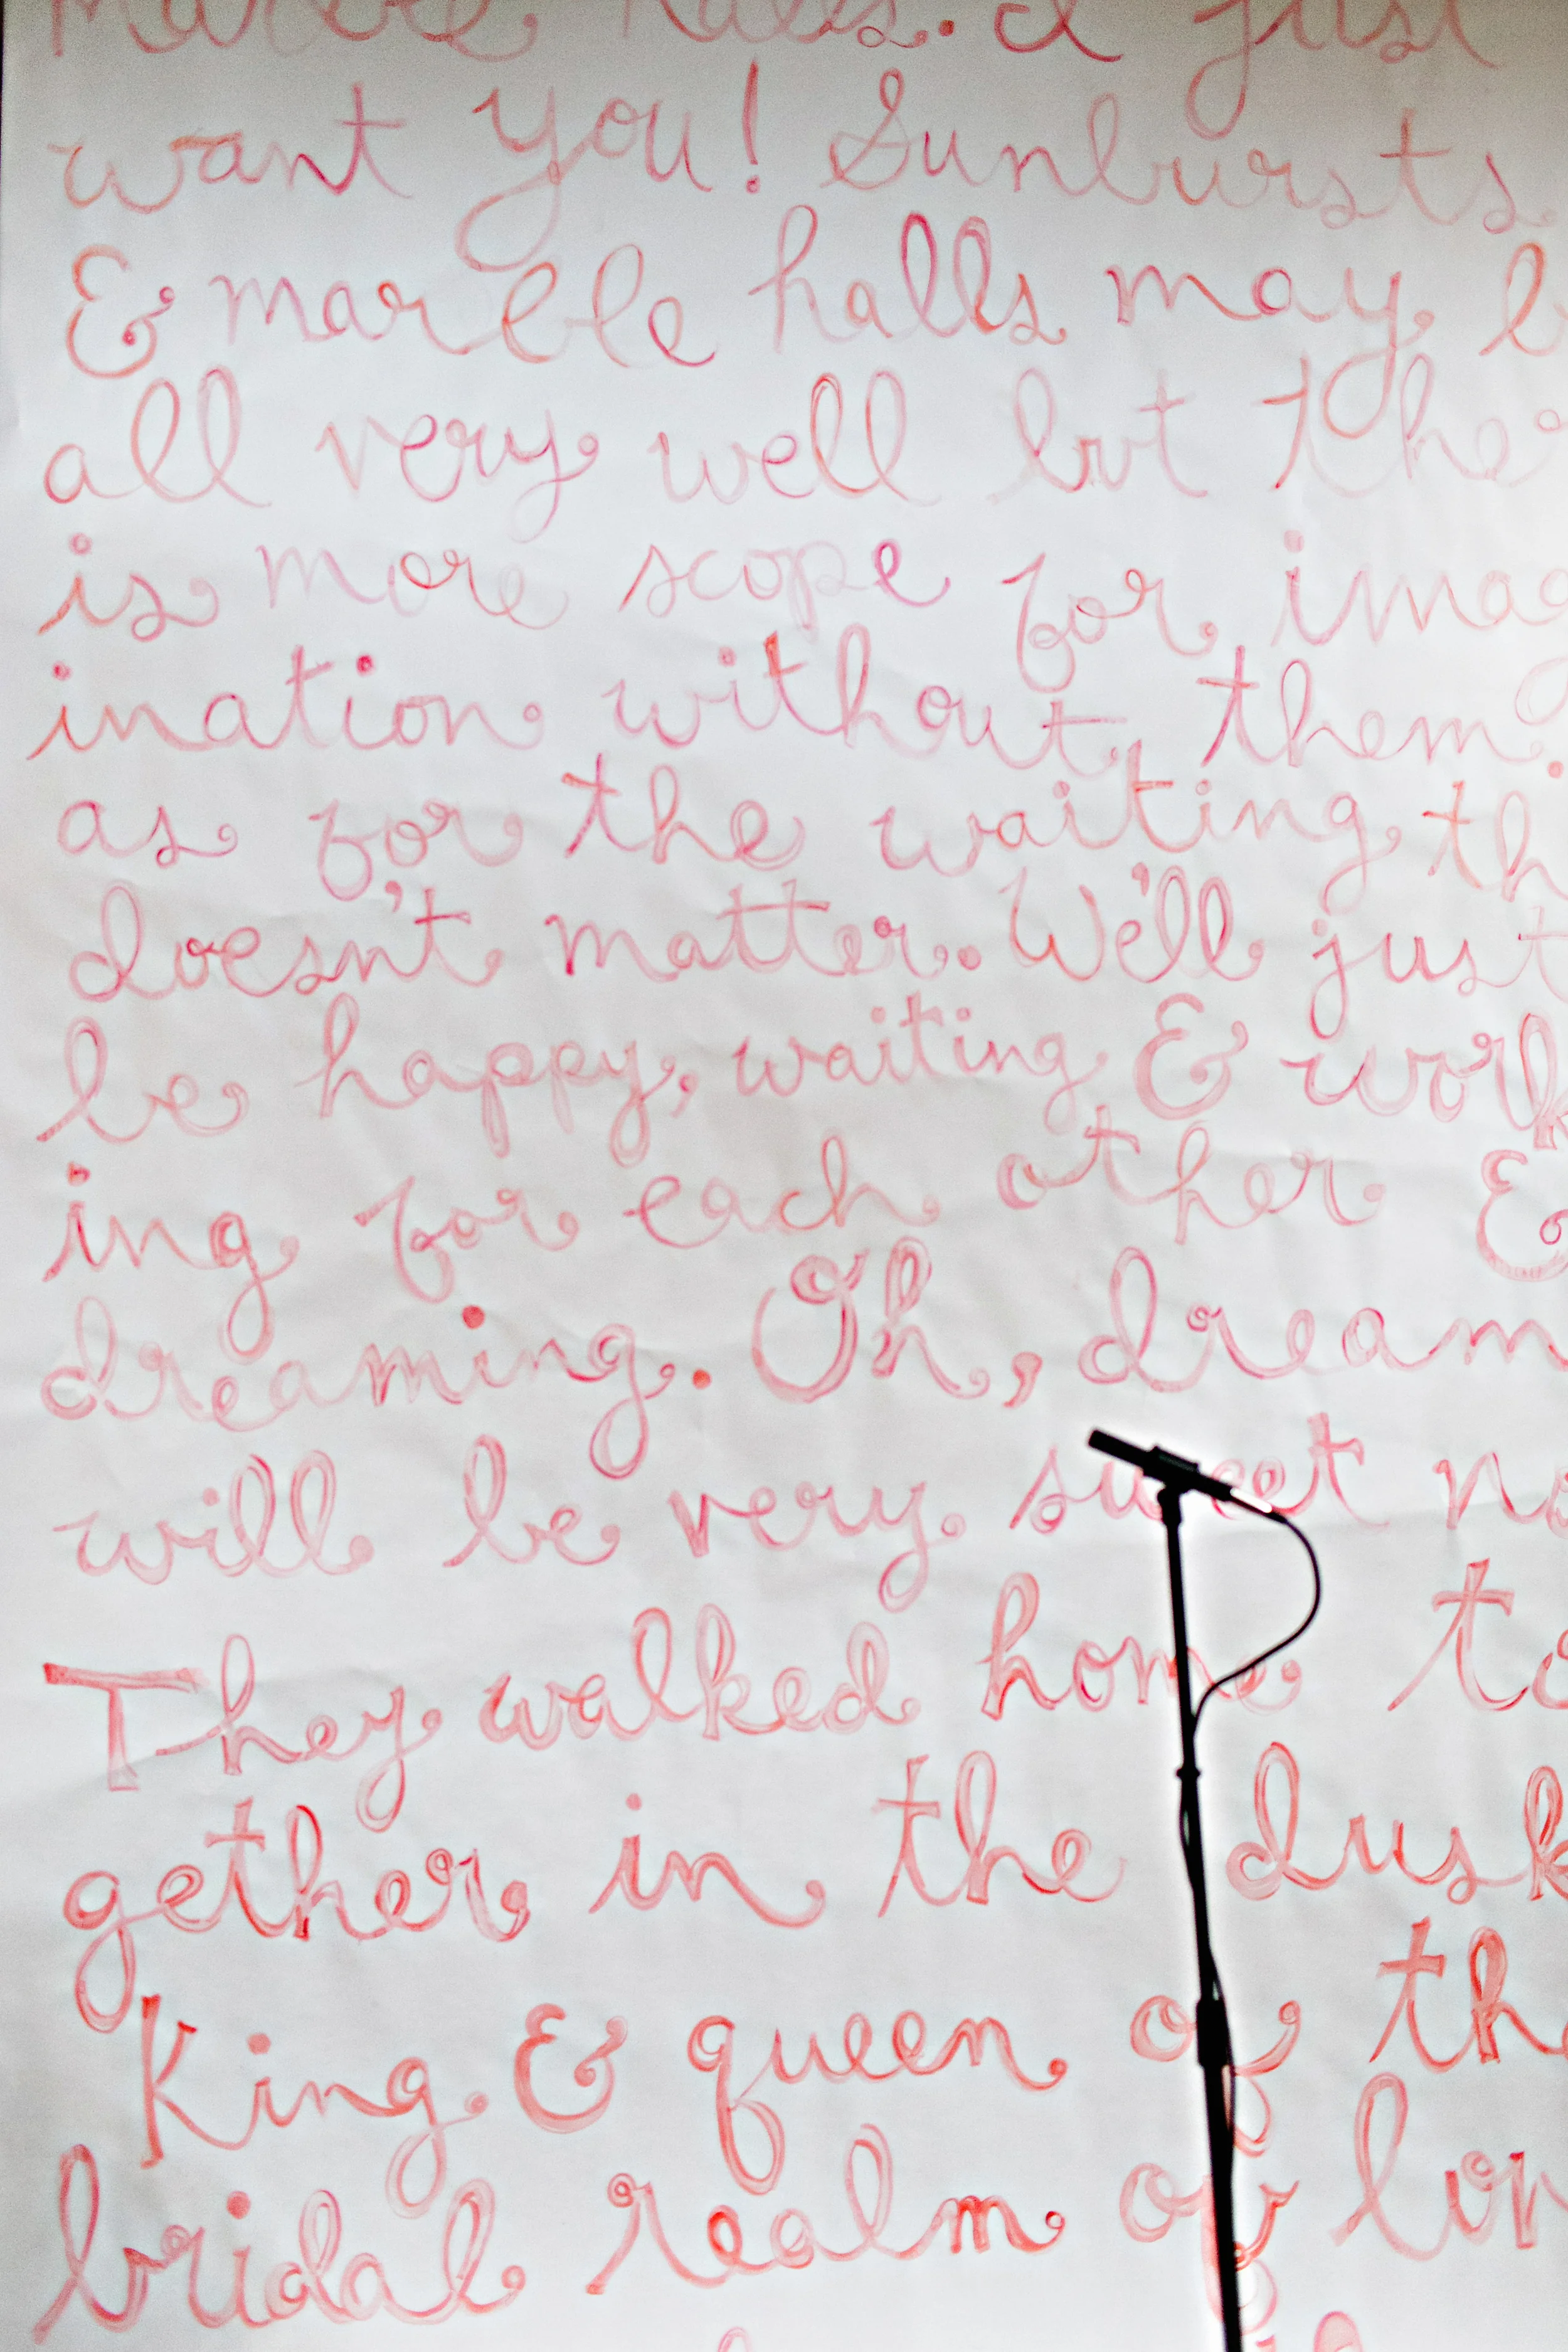 marble halls. I just
want you! Sunbursts
& marble halls may b
all very well but the
is more scope for imag
ination without them.
as for the waiting th
doesn't matter. We'll just
be happy, waiting & work
ing for each other &
dreaming. Oh, dream
will be very sweet no
They walked home to
gether in the dusk
King & queen of the
bridal realm of lov